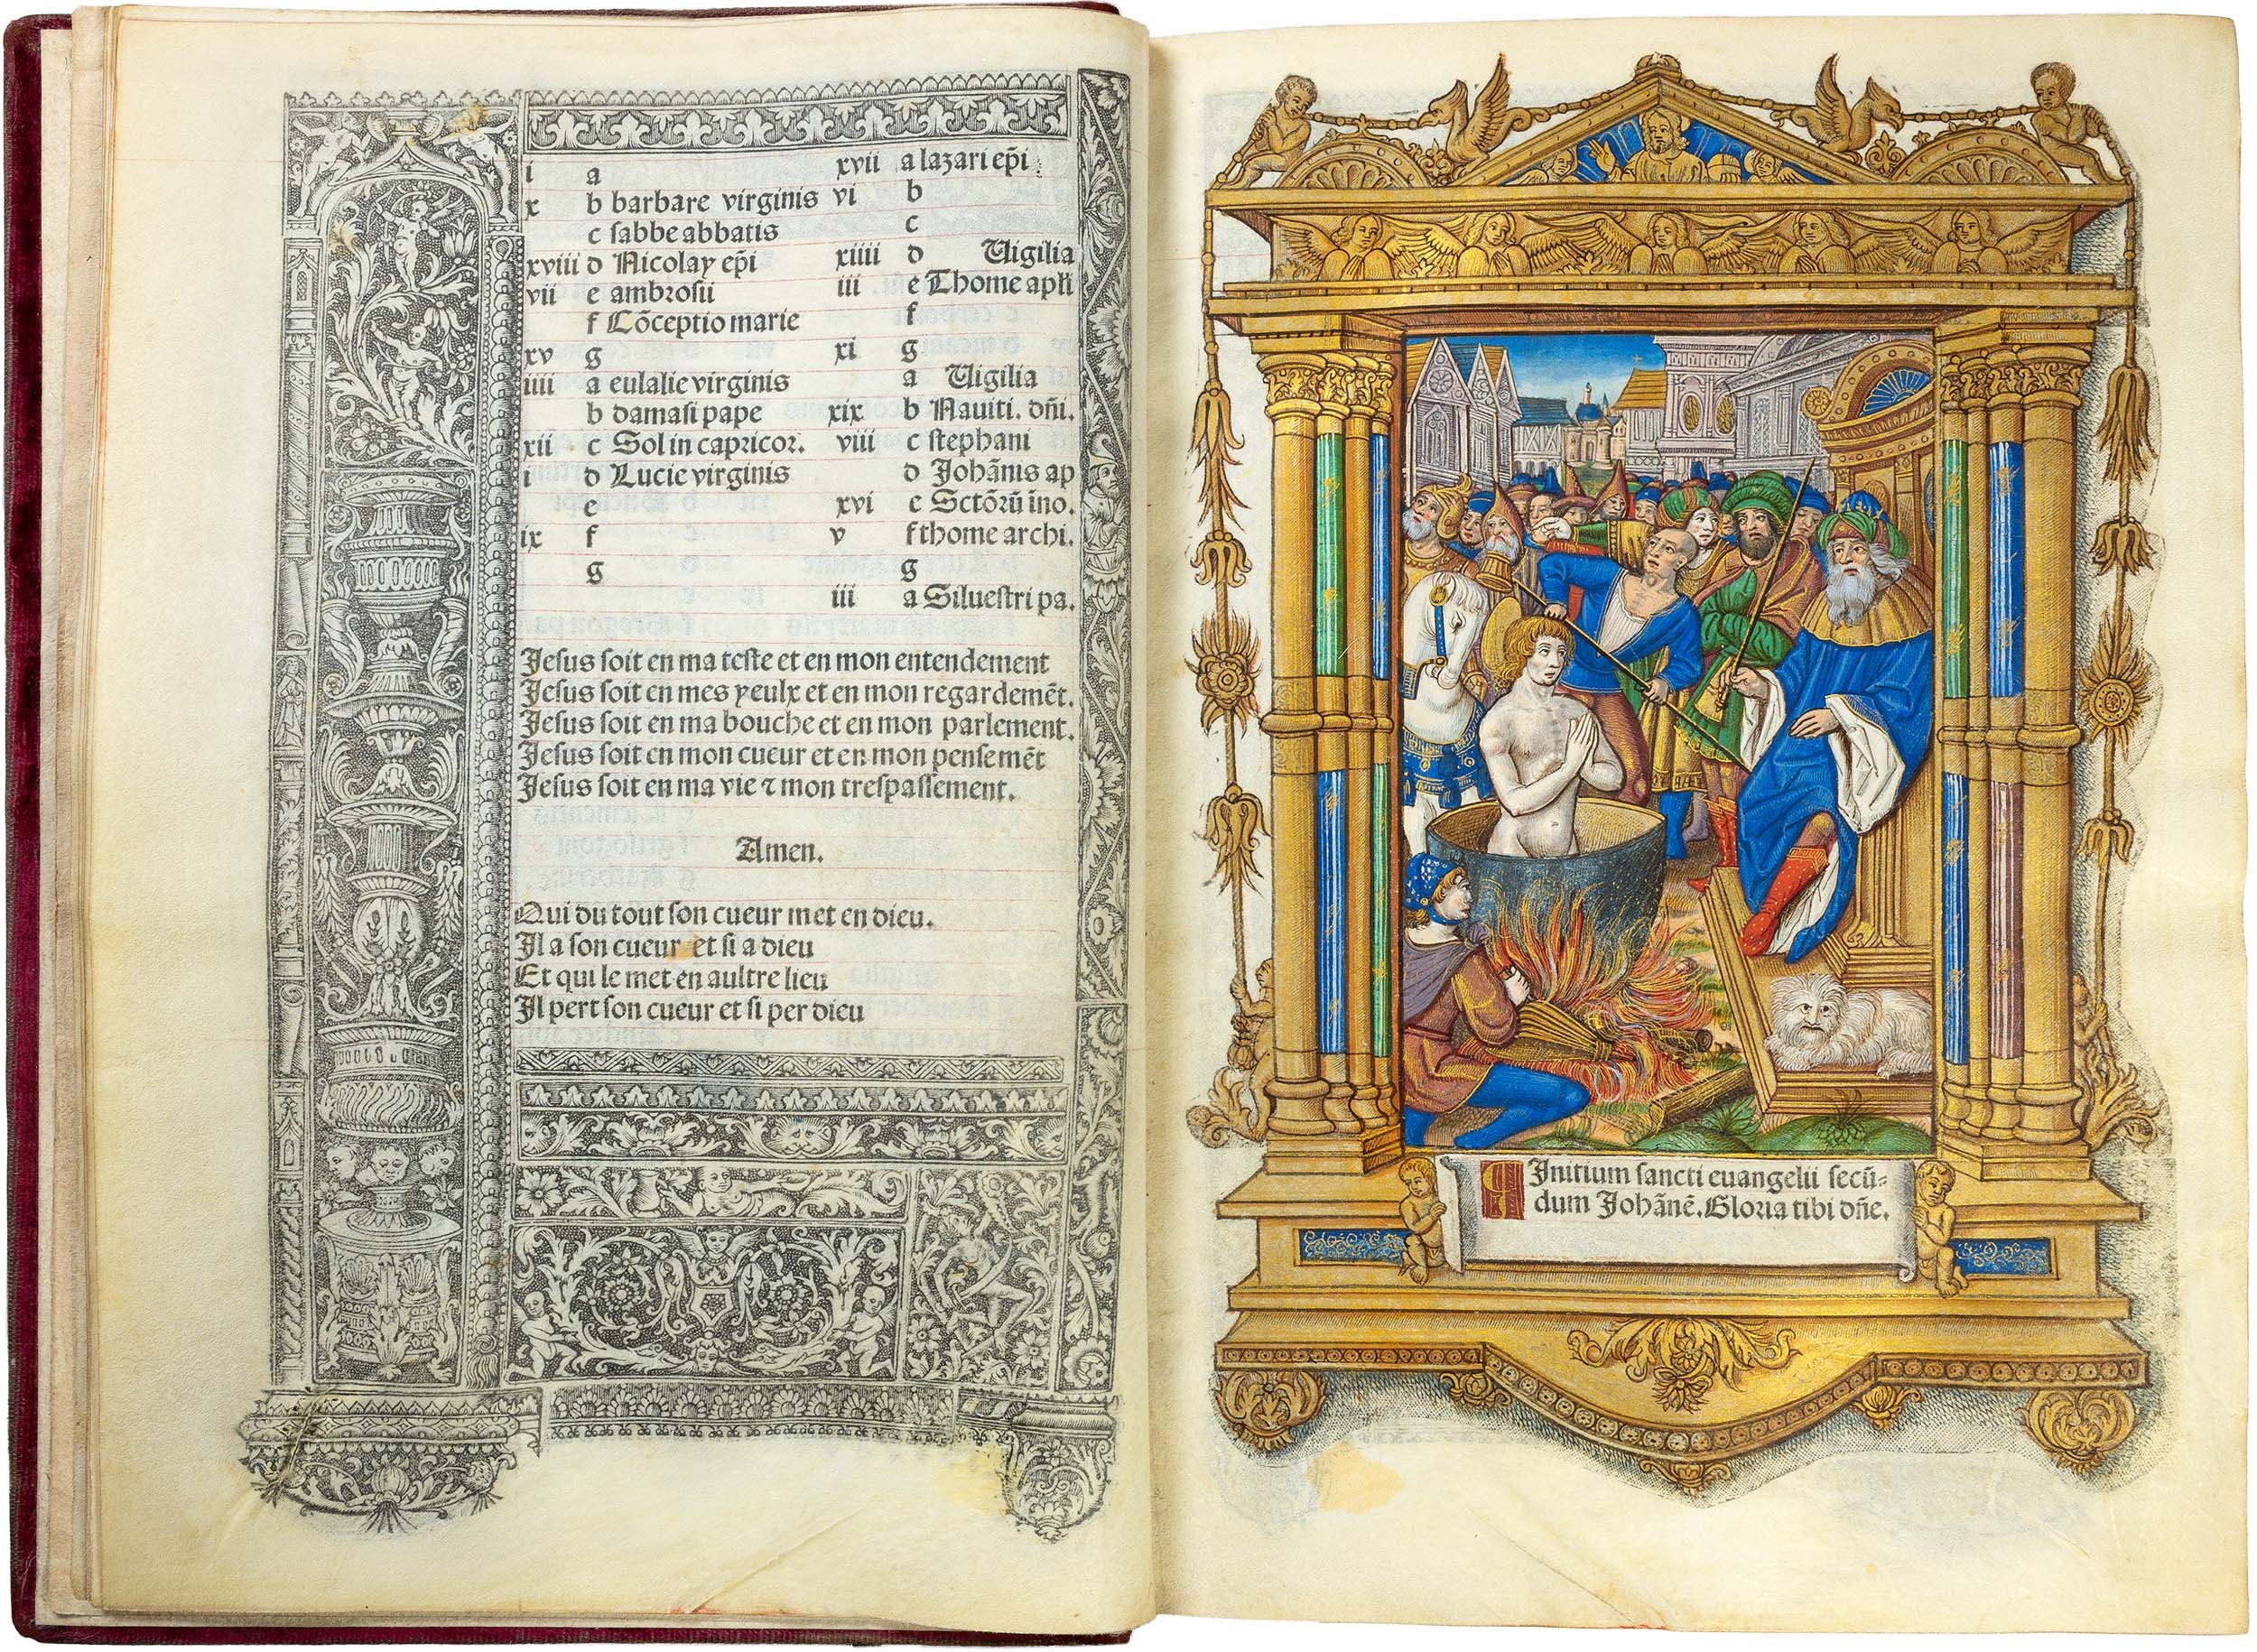 i a
x b barbare virginis
c sabbe abbatis
xviii d Nicolay ep̃i
vii e ambrosii
f Cõceptio marie
xv g
iiii a eulalie virginis
b damasi pape
xii c Sol in capricor.
i d Lucie virginis
e
ix f
g
xvii a lazari ep̃i
vi b
c
xiiii d Uigilia
iii e Thome apłi
f
xi g
a Uigilia
xix b Nauiti. dñi.
viii c stephani
d Johãnis ap
xvi e Sctõrũ ino.
v f thome archi.
g
iii a Siluestri pa.
Jesus soit en ma teste et en mon entendement
Jesus soit en mes yeulx et en mon regardemẽt.
Jesus soit en ma bouche et en mon parlement.
Jesus soit en mon cueur et en mon pensemẽt
Jesus soit en ma vie ⁊ mon trespassement.
Amen.
Qui du tout son cueur met en dieu.
Il a son cueur et si a dieu
Et qui le met en aultre lieu
Il pert son cueur et si per dieu
Initium sancti euangelii secũ-
dum Johãnẽ. Gloria tibi dñe.